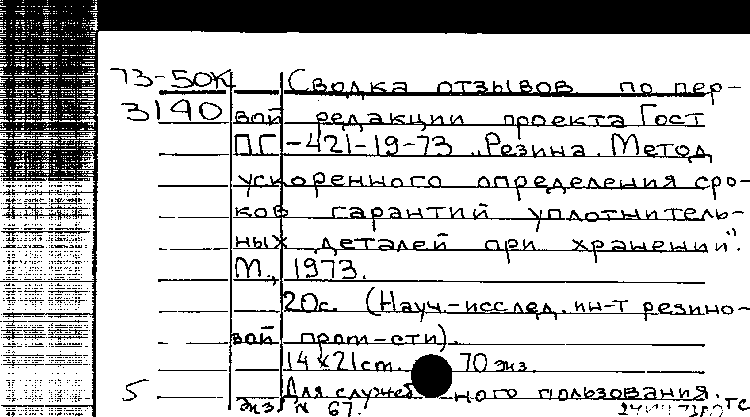 73-50К Сводка отзывов по пер-
3190 вой редакции проекта Гост
ПГ-421-19-73 „Резина. Метод
ускоренного определения сро-
ков гарантий уплотнитель-
ных деталей при хранении".
М., 1973.
20с. (Науч.-исслед. ин-т резино-
вой пром-сти).
14х21cm. 70 экз.
5 Для служеб ного пользования.
экз. N 67.